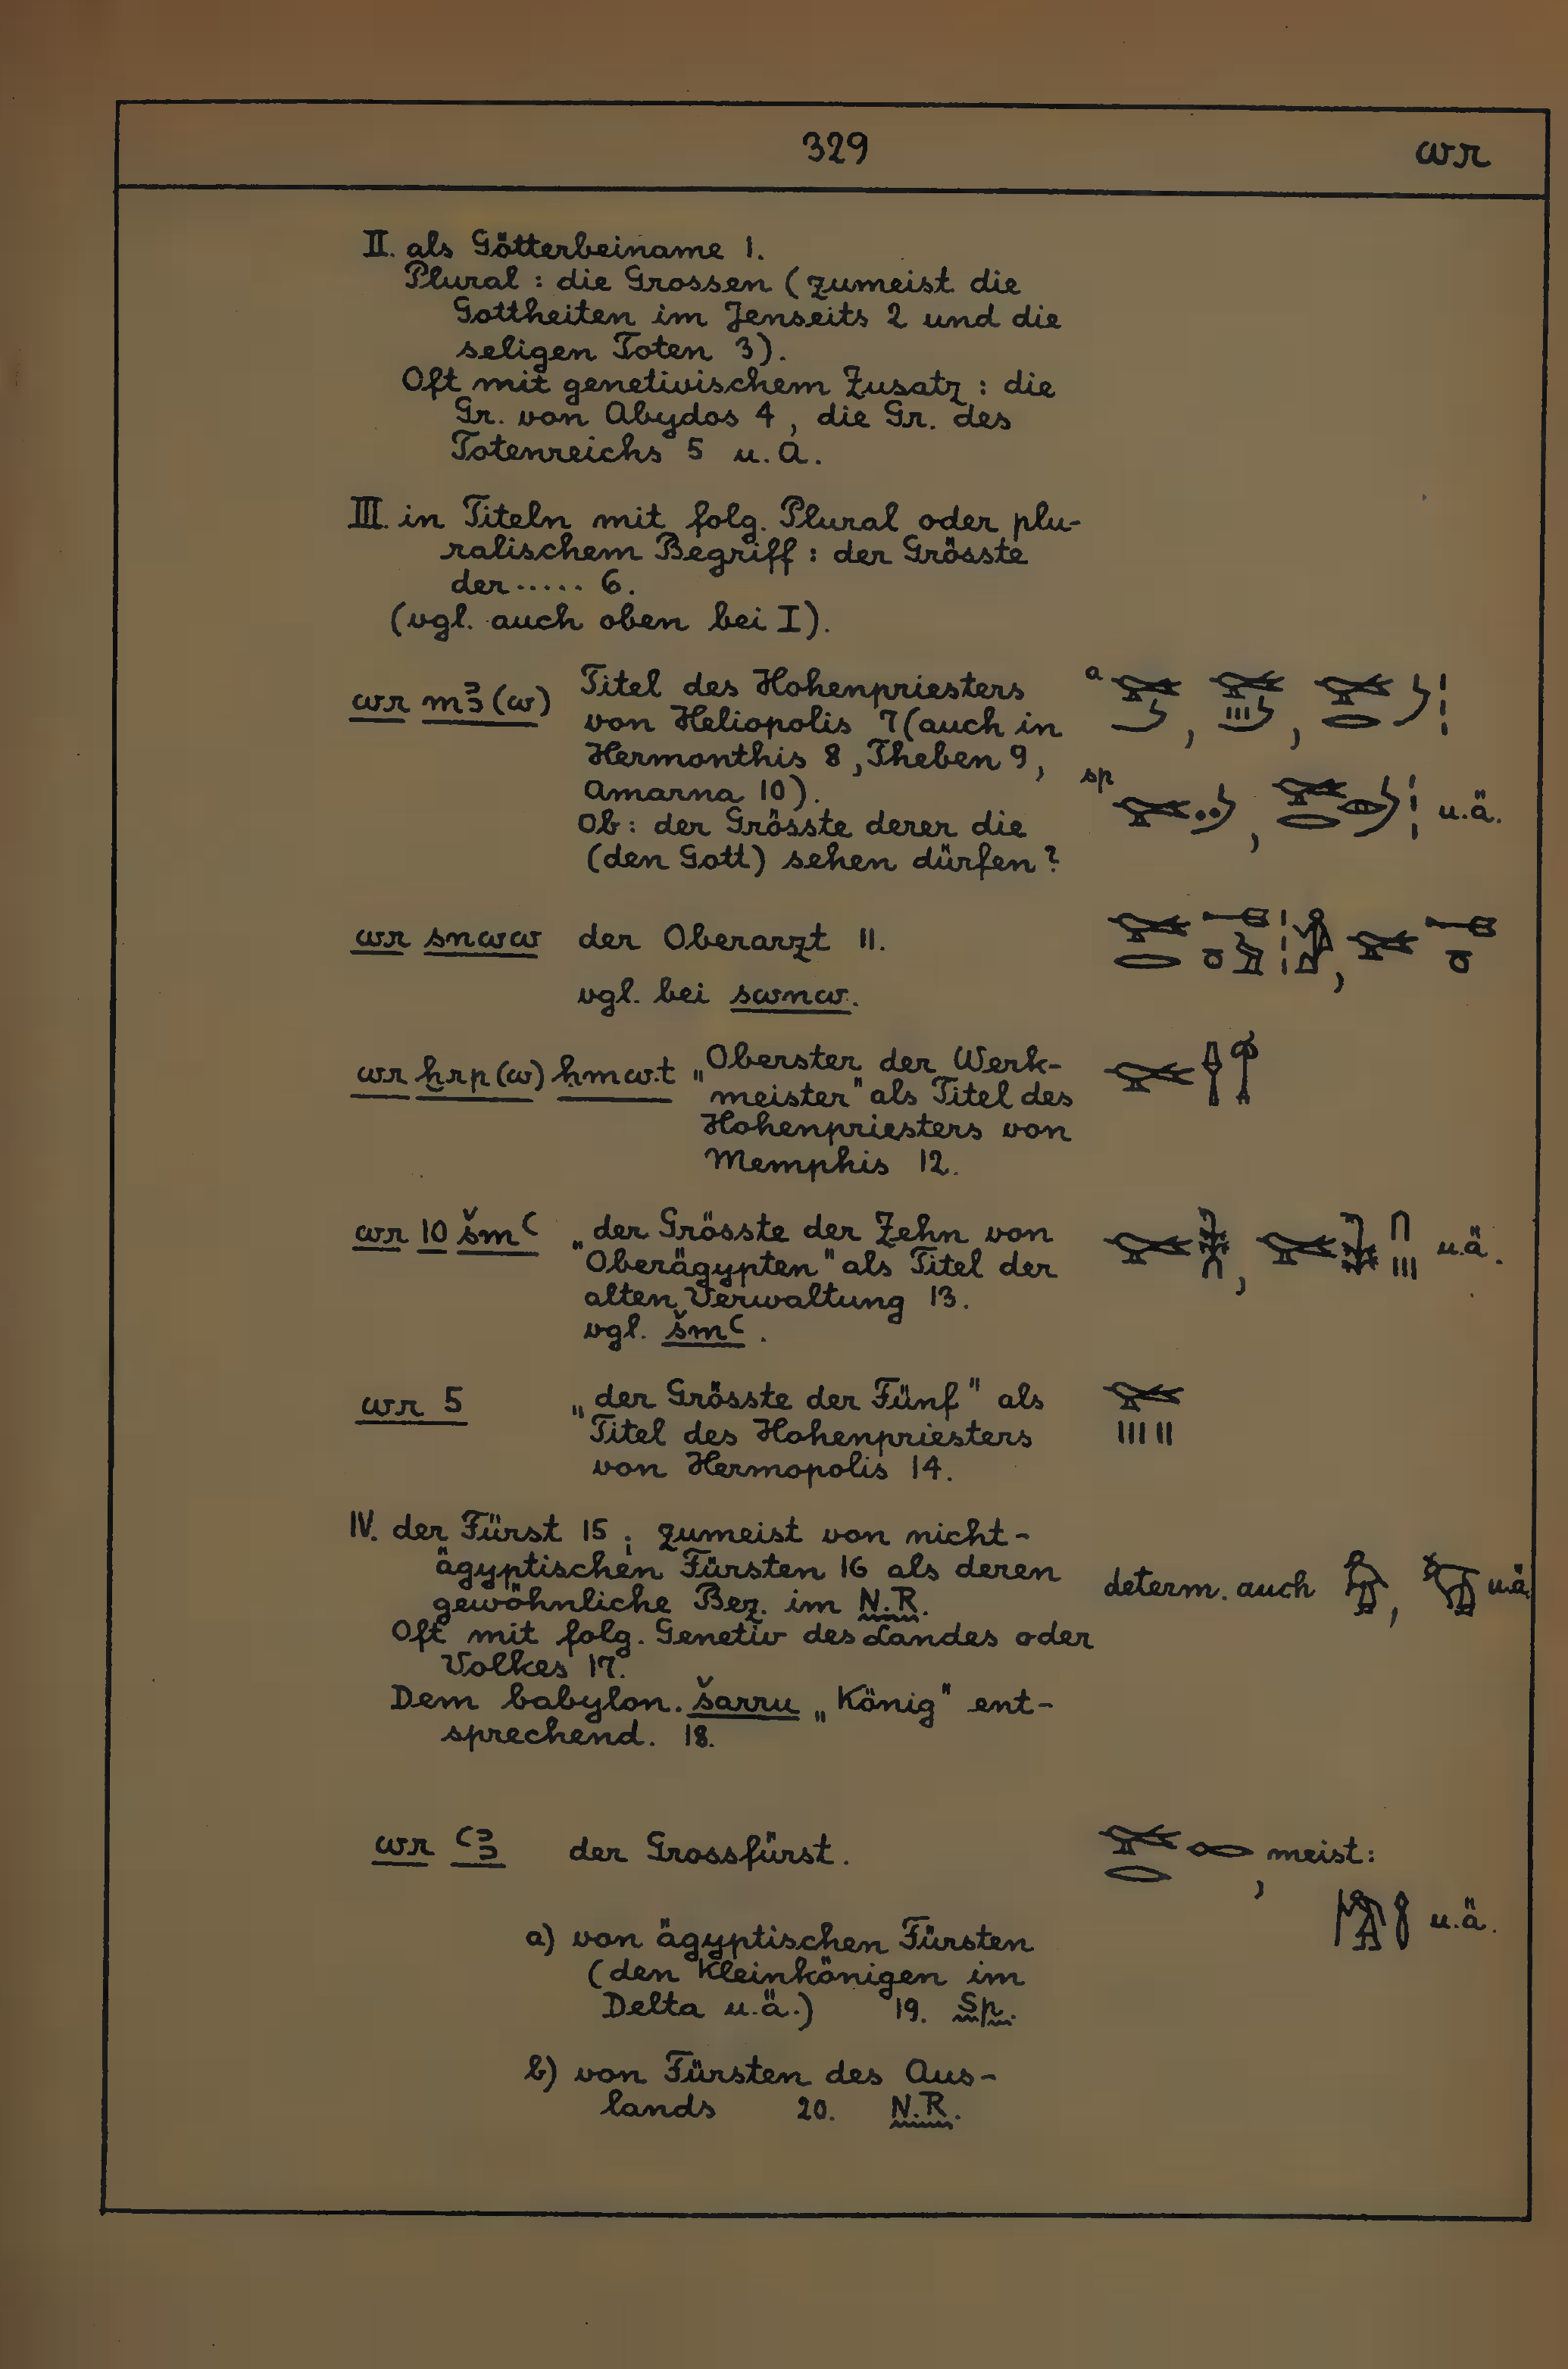 329 wr
II. als Götterbeiname 1.
Plural : die Grossen (zumeist die
Gottheiten im Jenseits 2 und die
seligen Toten 3).
Oft mit genetivischem Zusatz : die
Gr. von Abydos 4, die Gr. des
Totenreichs 5 u. A.
III. in Titeln mit folg. Plural oder plu-
ralischem Begriff : der Grösste
der ····· 6.
(vgl. auch oben bei I).
wr mꜣ(w) Titel des Hohenpriesters a
von Heliopolis 7 (auch in
Hermonthis 8, Theben 9, sp
Amarna 10). u.ä.
Ob : der Grösste derer die
(den Gott) sehen dürfen?
wr snww der Oberarzt 11.
vgl. bei swnw.
wr ḫrp(w) ḥmw.t „Oberster der Werk-
meister" als Titel des
Hohenpriesters von
Memphis 12.
wr 10 šmꜥ „der Grösste der Zehn von u.ä.
Oberägypten" als Titel der
alten Verwaltung 13.
vgl. šmꜥ.
wr 5 „der Grösste der Fünf" als
Titel des Hohenpriesters
von Hermopolis 14.
IV. der Fürst 15; zumeist von nicht-
ägyptischen Fürsten 16 als deren determ. auch , u.ä.
gewöhnliche Bez. im N.R.
Oft mit folg. Genetiv des Landes oder
Volkes 17.
Dem babylon. šarru „König" ent-
sprechend. 18.
wr ꜥꜣ der Grossfürst. , meist:
u.ä.
a) von ägyptischen Fürsten
(den Kleinkönigen im
Delta u.ä.) 19. Sp.
b) von Fürsten des Aus-
lands 20. N.R.